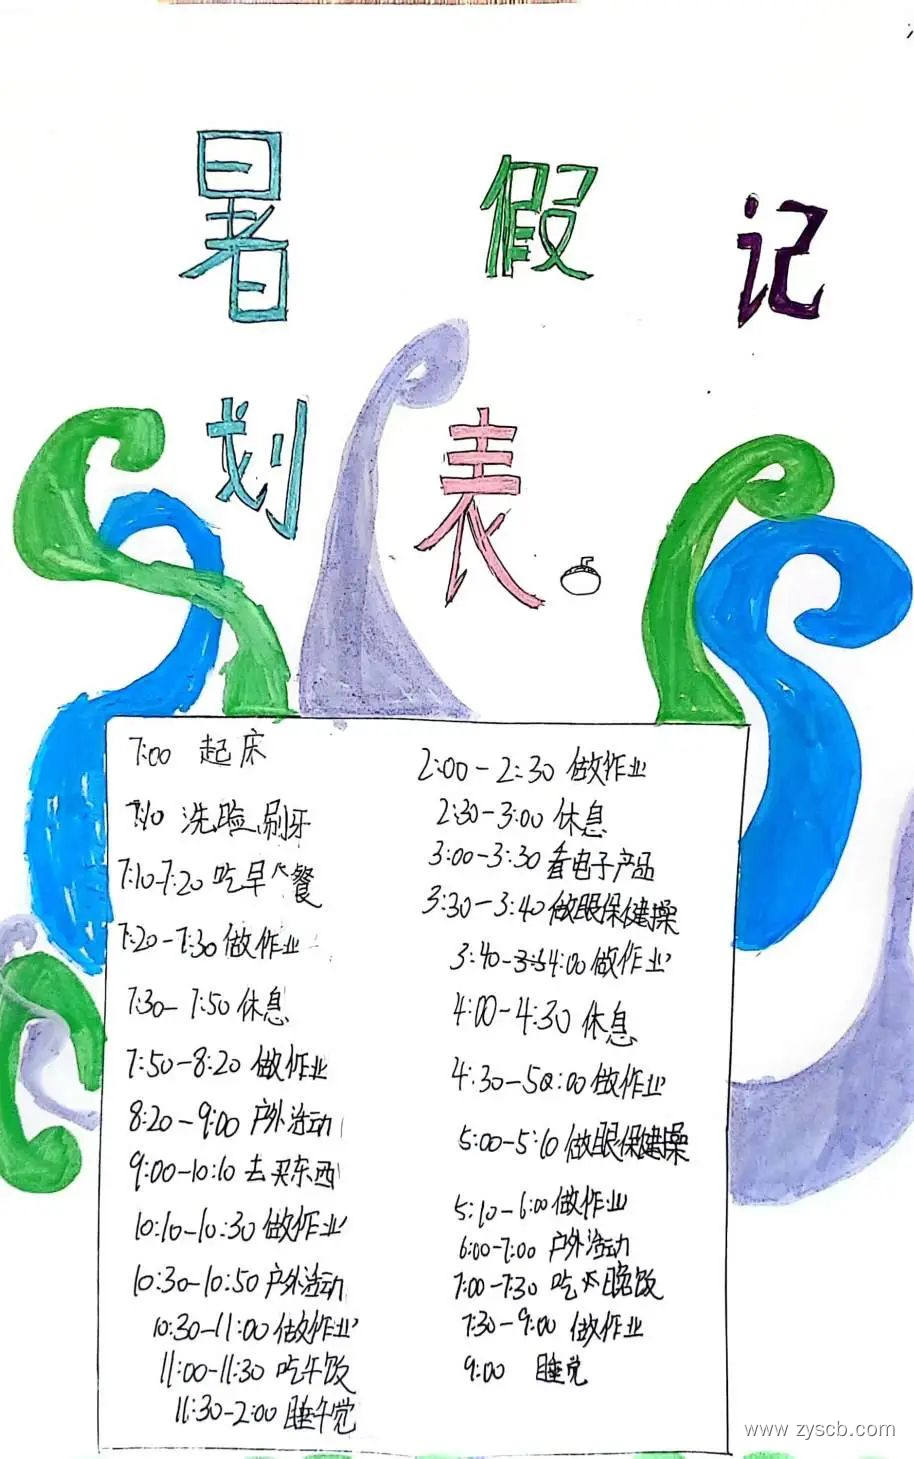 暑 假 记
划 表
7:00 起床
7:10 洗脸刷牙
7:10-7:20 吃早餐
7:20-7:30 做作业
7:30-7:50 休息
7:50-8:20 做作业
8:20-9:00 户外活动
9:00-10:10 去买东西
10:10-10:30 做作业
10:30-10:50 户外活动
10:30-11:00 做作业
11:00-11:30 吃午饭
11:30-2:00 睡午觉
2:00-2:30 做作业
2:30-3:00 休息
3:00-3:30 看电子产品
3:30-3:40 做眼保健操
3:40-4:00 做作业
4:00-4:30 休息
4:30-5:00 做作业
5:00-5:10 做眼保健操
5:10-6:00 做作业
6:00-7:00 户外活动
7:00-7:30 吃晚饭
7:30-9:00 做作业
9:00 睡觉
www.zyscb.com